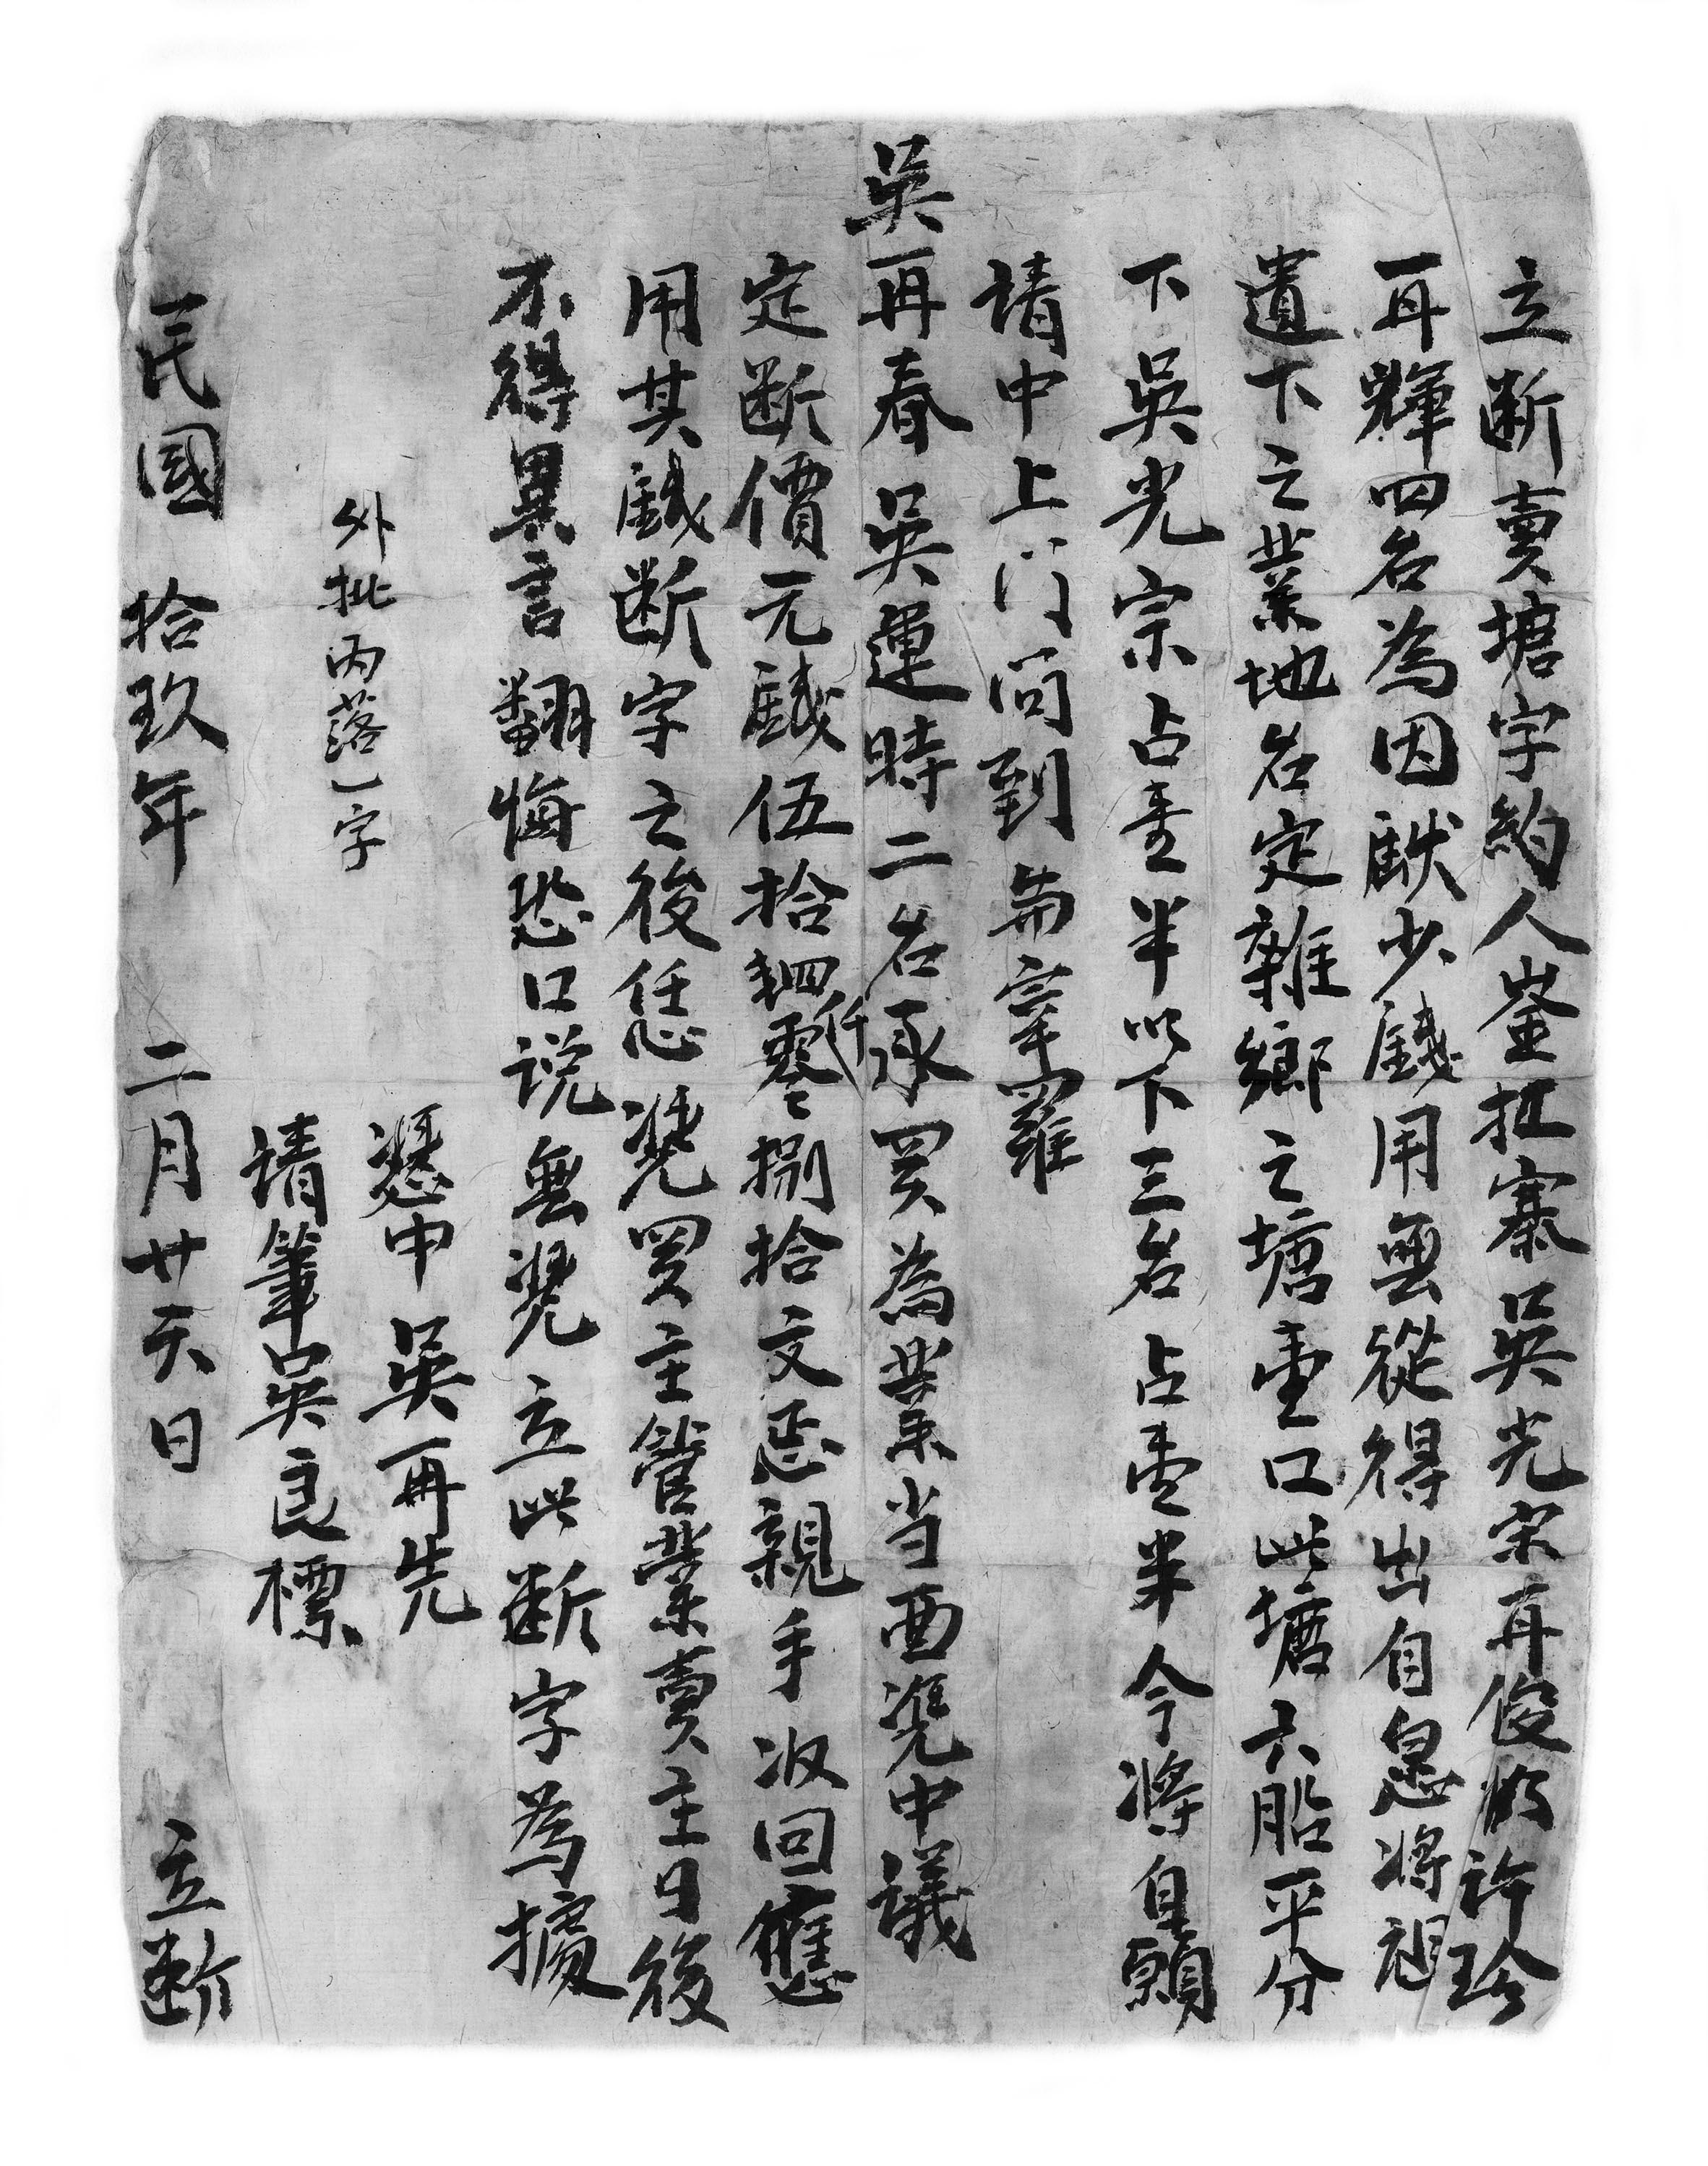 立断賣塘字約人崟扭寨吳光宗再俊　許珍
再輝四名為因缺少錢用無從得出自愿將祖
遺下之業地名定雜鄉之塘壹口此塘六股平分
下吳光宗占壹半以下三名占壹半今將自願
請中上门问到岩寨羅
吳再春吳運時二名承買為業当面凭中議
定断價元錢伍拾四仟零捌拾文恁親手收回應
用其錢断字之後任凴買主管業賣主日後
不得異言翻悔恐口说無凴立此断字為據
外批内落一字
憑中吳再先
请筆吳良標
民國拾玖年二月廿六日立断